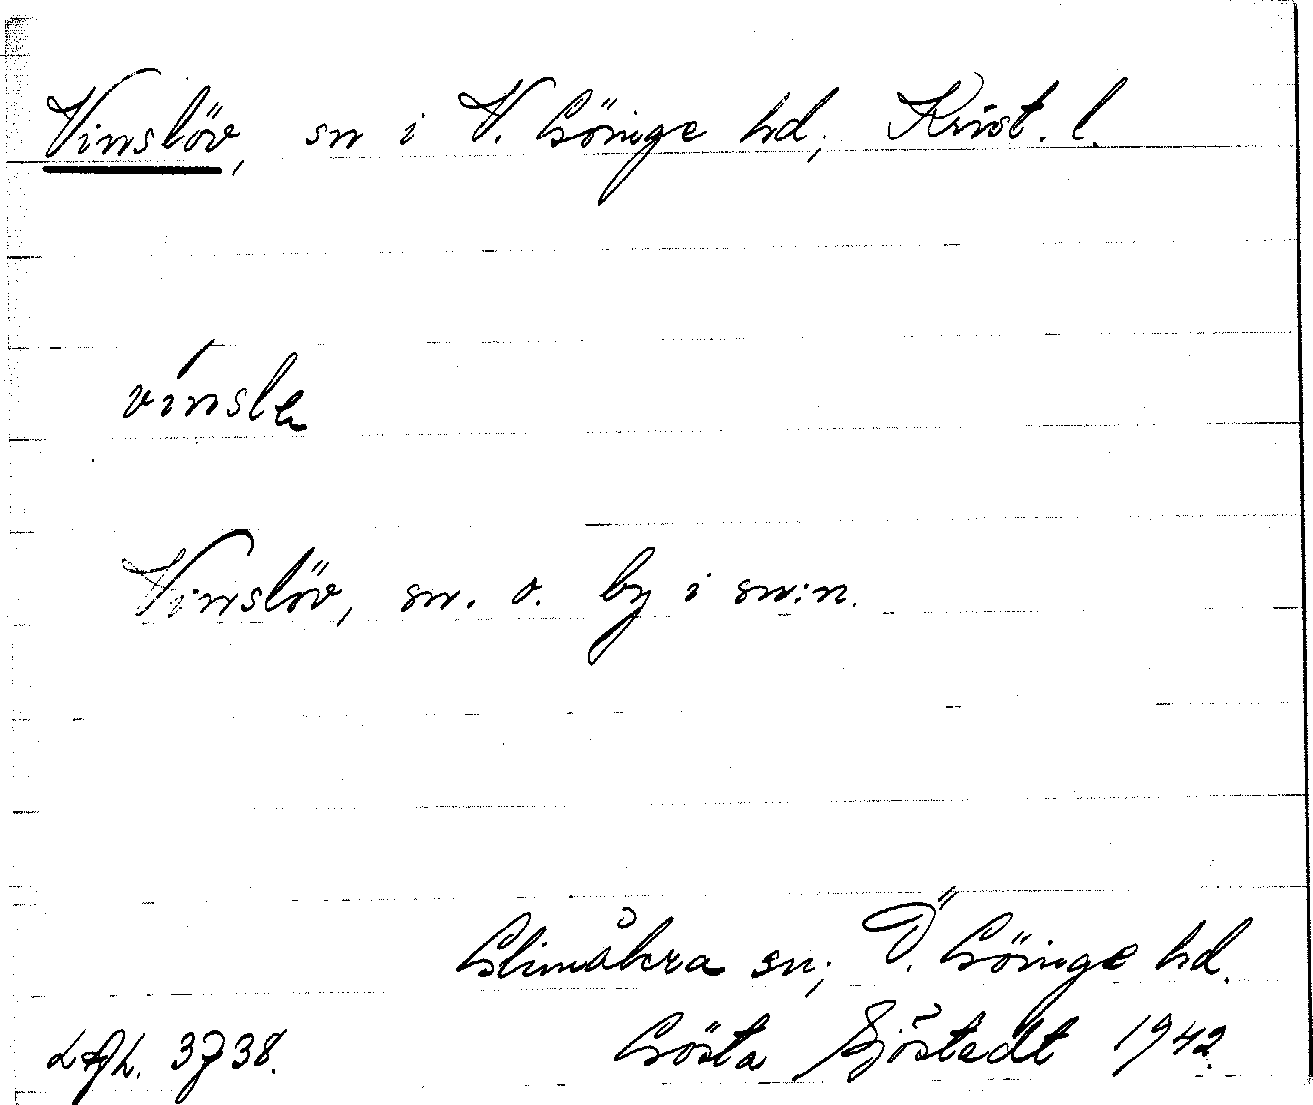 Vinslöv, sn i V. Göinge hd, Krist. l.
vínsle
Vinslöv, sn. o. by i sn:n.
Glimåkra sn, Ö. Göinge hd.
Gösta Sjöstedt 1942.
3738.